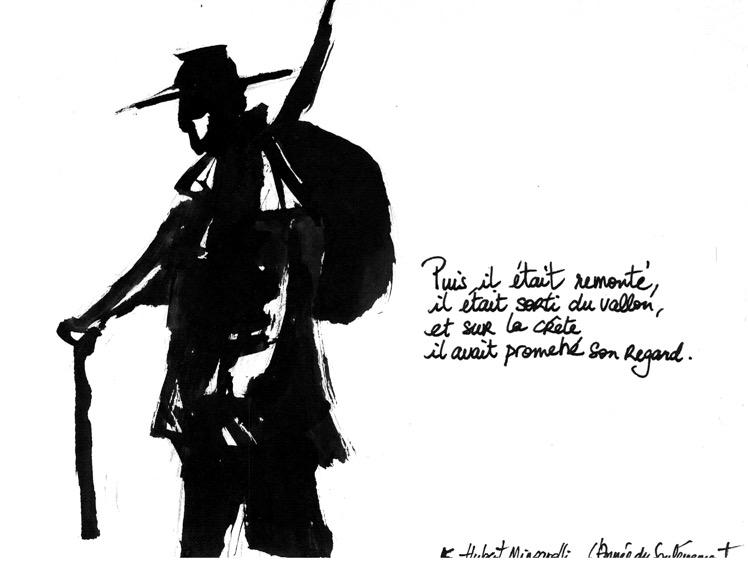 Puis il était remonté,
il était sorti du vallon,
et sur la crête
il avait promené son regard.
Hubert Mingarelli L'Année du Soulèvement